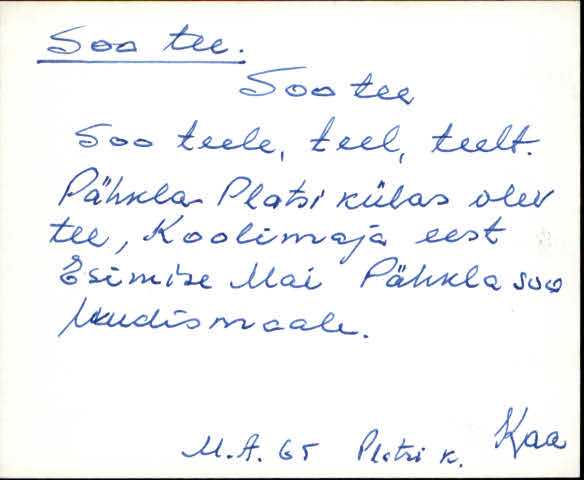 Soo tee.
Soo tee
Soo teele, teel, teelt.
Pähkla Platsi külas olev
tee, Koolimaja eest
Esimise Mai Pähkla soo
Uudismaale.
M.A. 65 Platsi k. Kaa